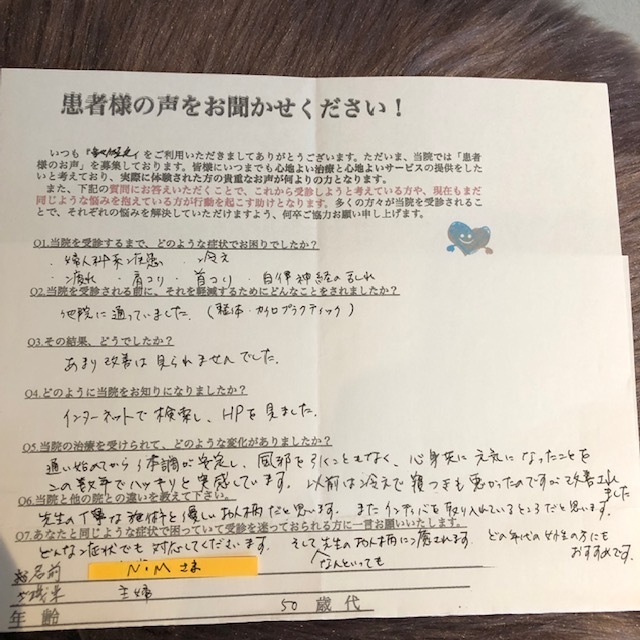 患者様の声をお聞かせください！
いつも『
』をご利用いただきましてありがとうございます。ただいま、当院では「患者
様のお声」を募集しております。皆様にいつまでも心地よい治療と心地よいサービスの提供をした
いと考えており、実際に体験された方の貴重なお声が何よりの力となります。
また、下記の質問にお答えいただくことで、これから受診しようと考えている方や、現在もまだ
同じような悩みを抱えている方が行動を起こす助けとなります。多くの方々が当院を受診されるこ
とで、それぞれの悩みを解決していただけますよう、何卒ご協力お願い申し上げます。
Q1.当院を受診するまで、どのような症状でお困りでしたか？
・婦人科系疾患 ・冷え
・疲れ ・肩コリ ・首コリ ・自律神経の乱れ
Q2.当院を受診される前に、それを軽減するためにどんなことをされましたか？
他院に通っていました。（整体・カイロプラクティック）
Q3.その結果、どうでしたか？
あまり改善は見られませんでした。
Q4.どのように当院をお知りになりましたか？
インターネットで検索し、HPを見ました。
Q5.当院の治療を受けられて、どのような変化がありましたか？
通い始めてから体調が安定し、風邪を引くこともなく、心身共に元気になったことを
この数年でハッキリと実感しています。以前は冷えで寝つきも悪かったのですが改善され
ました
Q6.当院と他の院との違いを教えて下さい。
先生の丁寧な施術と優しいお人柄だと思います。またインディバを取り入れているところだと思います。
Q7.あなたと同じような症状で困っていて受診を迷っておられる方に一言お願いいたします。
どんな症状でも対応してくださいます。そして先生のお人柄に癒されます。どの年代の女性の方にも
なんといっても
おすすめです。
お名前 N・M さま
ご職業 主婦
年齢 50 歳代